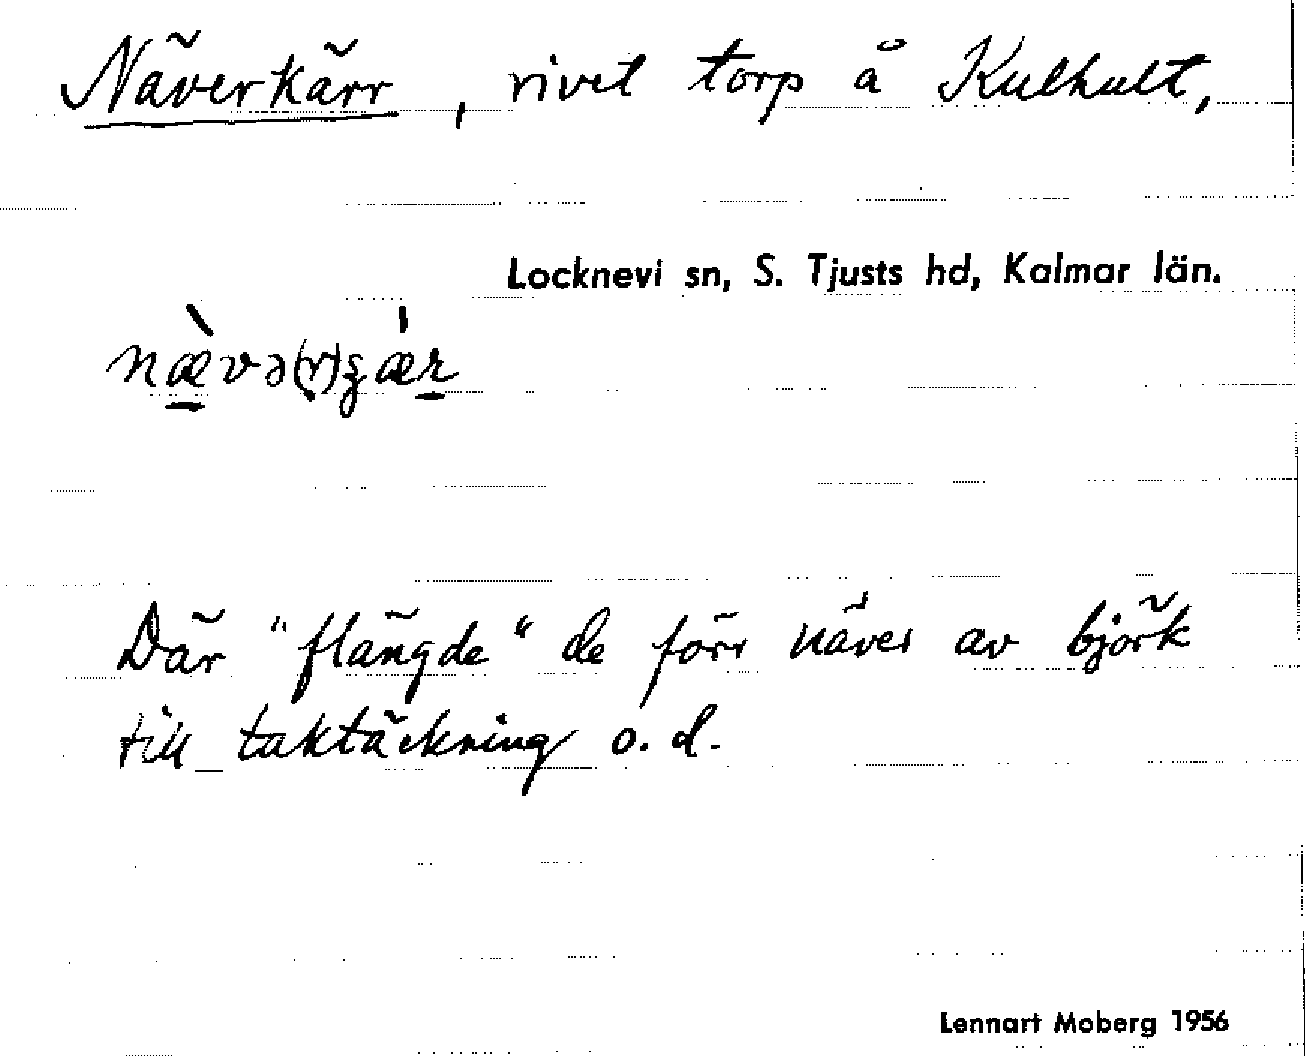 Näverkärr, rivet torp å Kulhult,
Locknevi sn, S. Tjusts hd, Kalmar län.
Där "flängde" de förr näver av björk
till taktäckning o.d.
Lennart Moberg 1956